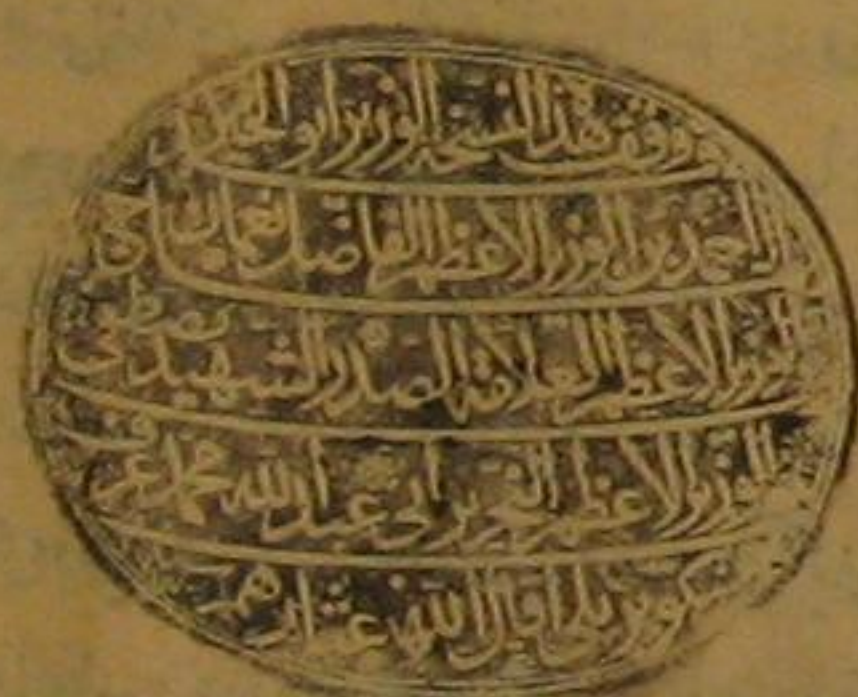 وقف هذا النسخة الوزير أبو الخير
احمد بن الوزير الاعظم الفاضل نعمان بن
الوزير الاعظم العلامة الصدر الشهيد مصطفى
الوزير الاعظم النحرير ابي عبد الله محمد عرف
بكوبريلي اقال الله عثارهم